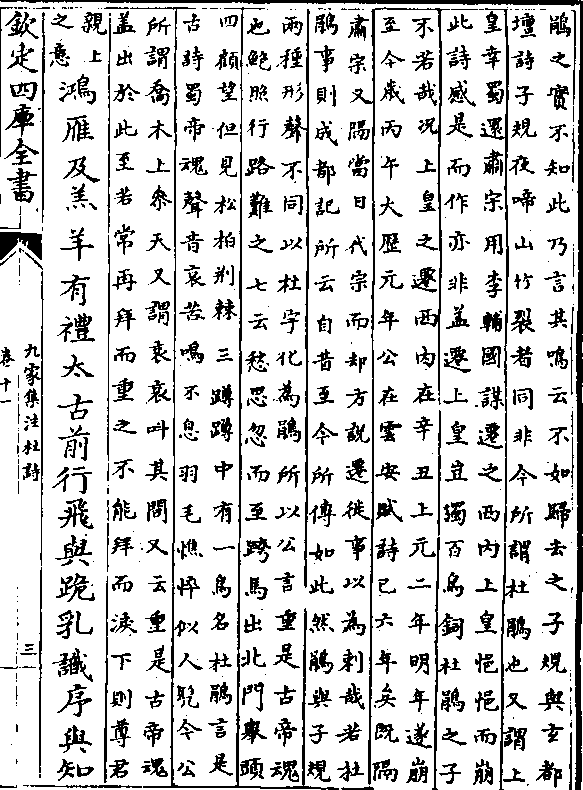 鵑之實不知此乃言其鳴云不如歸去之子規與玄都
壇詩子規夜啼山竹裂者同非今所謂杜鵑也又謂上
皇幸蜀還肅宗用李輔國謀遷之西内上皇悒悒而崩
此詩感是而作亦非蓋遷上皇豈獨百鳥飼杜鵑之子
不若哉况上皇之遷西内在辛丑上元二年明年遂崩
至今歲丙午大歷元年公在雲安賦詩已六年矣既隔
肅宗又隔當日代宗而却方說遷徙事以為刺哉若杜
鵑事則成都記所云自昔至今所傳如此然鵑與子規
兩種形聲不同以杜宇化為鵑所以公言重是古帝魂
也鮑照行路難之七云愁思忽而至跨馬出北門舉頭
四顧望但見松柏荆棘三蹲蹲中有一鳥名杜鵑言是
古時蜀帝魂聲音哀苦鳴不息羽毛憔悴似人髠今公
所謂喬木上參天又謂哀哀叫其間又云重是古帝魂
蓋出於此至若常再拜而重之不能拜而淚下則尊君
親上
之意
鴻雁及羔羊有禮太古前行飛與跪乳識序與知
欽定四庫全書
九家集注杜詩
卷十一
三